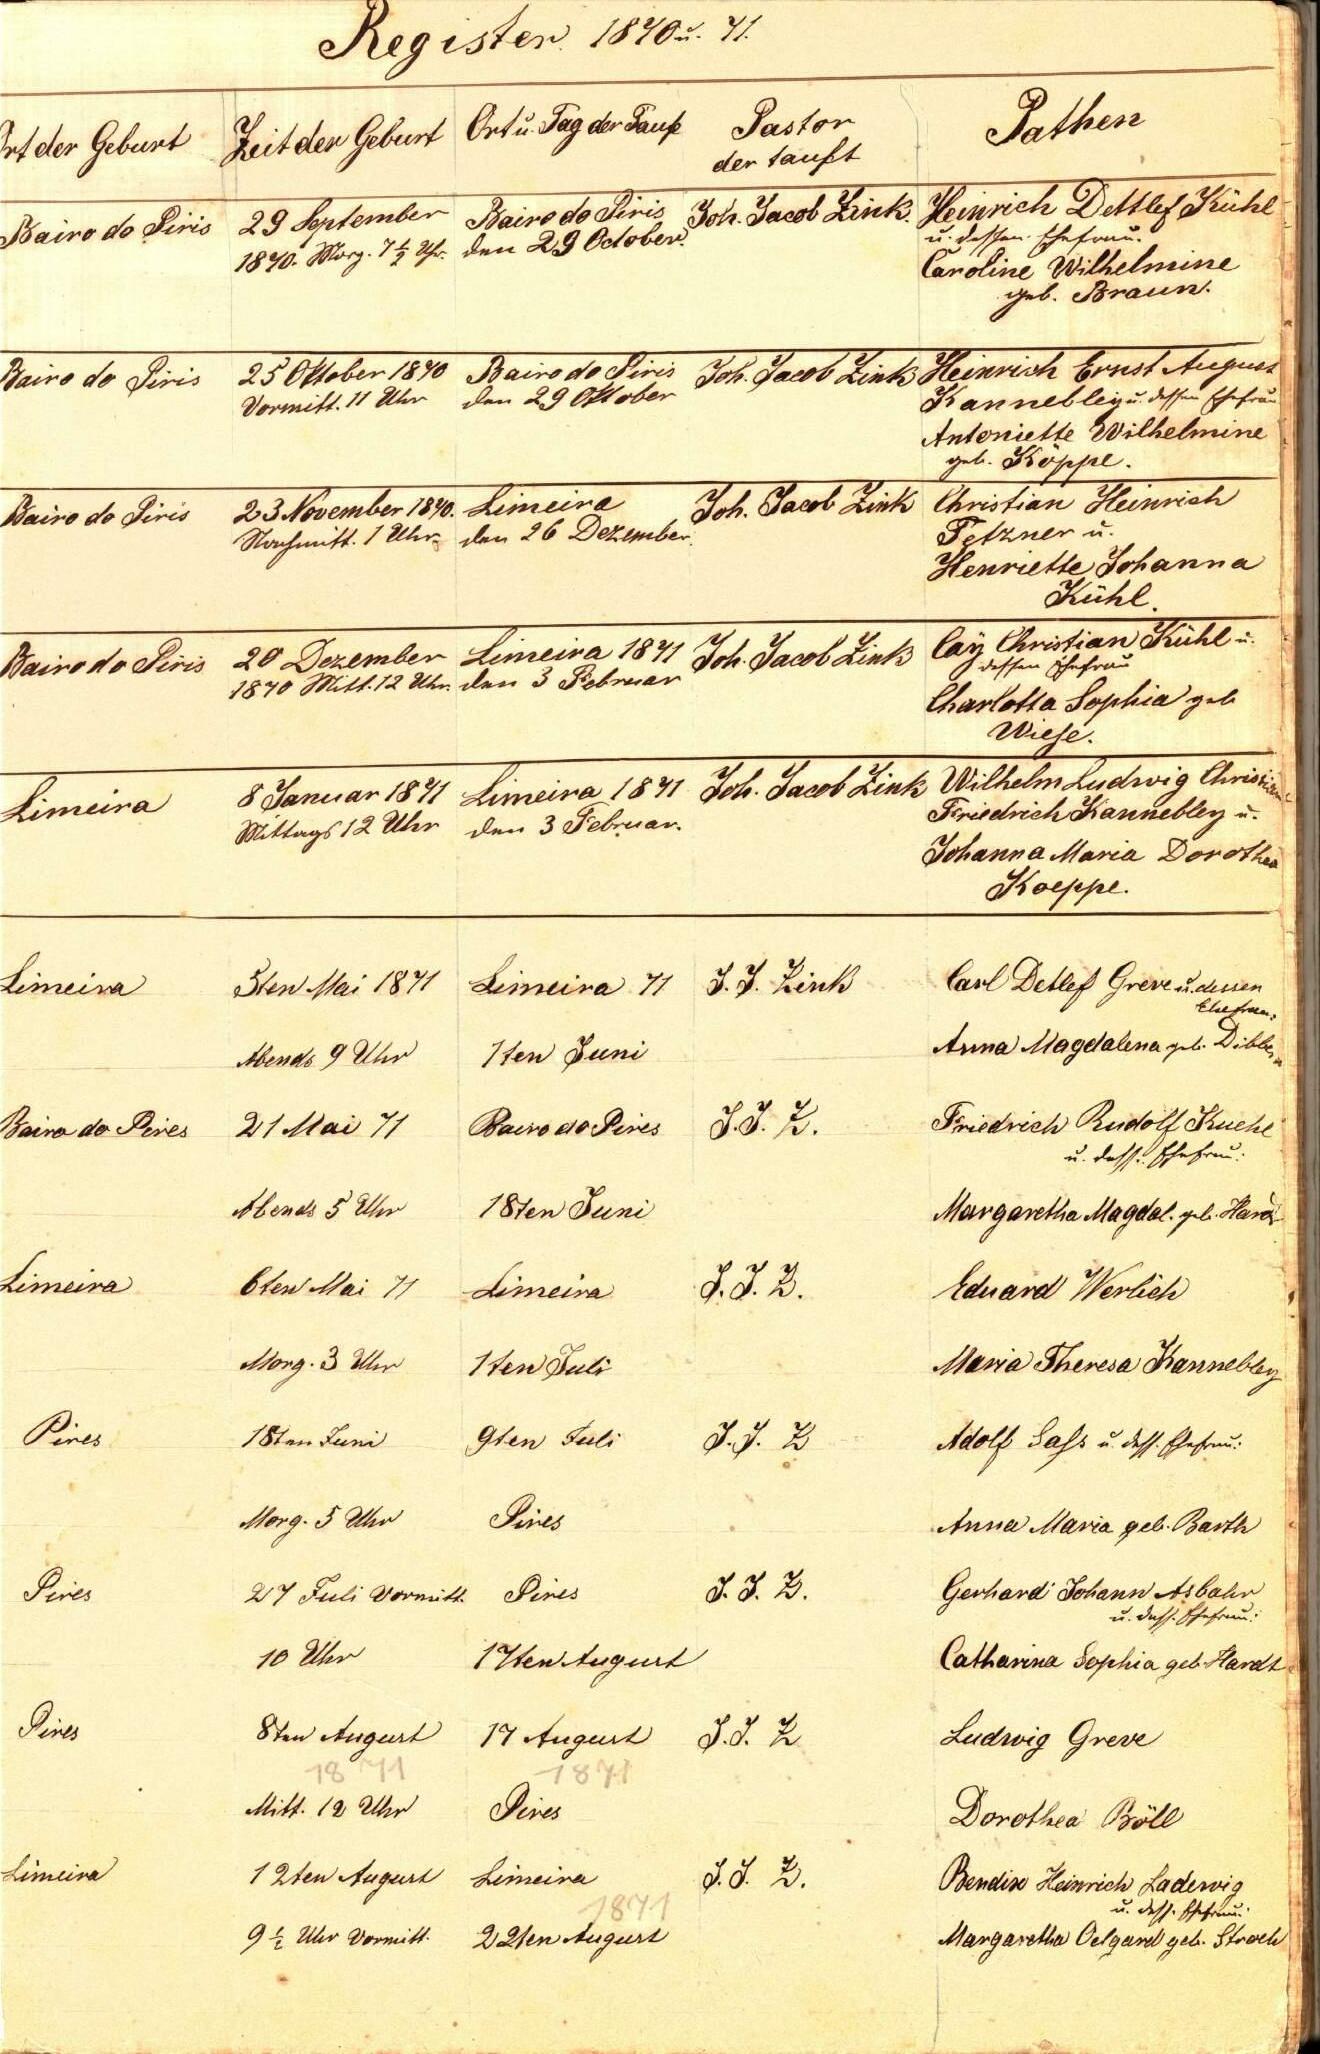 Register. 1870 u. 71.
Ort der Geburt
Zeit der Geburt
Ort u. Tag der Taufe
Pastor
der tauft
Pathen
Bairo do Piris
29 September
1870. Morg. 7 ½ Uhr.
Bairo do Piris
den 29 October.
Joh. Jacob Zink.
Heinrich Dettlef Kühl
u. dessen Ehefrau.
Caroline Wilhelmine
geb. Braun.
Bairo do Piris
25 Oktober 1870
Vormitt. 11 Uhr
Bairo do Piris
den 29 Oktober
Joh. Jacob Zink
Heinrich Ernst August
Kannebley u. dessen Ehefrau
Antoniette Wilhelmine
geb. Köppe.
Bairo do Piris
23 November 1870.
Nachmitt. 1 Uhr
Limeira
den 26 Dezember.
Joh. Jacob Zink
Christian Heinrich
Fetzner u.
Henriette Johanna
Kühl.
Bairo do Piris
20 Dezember
1870 Mitt. 12 Uhr.
Limeira 1871
den 3 Februar
Joh. Jacob Zink
Caÿ Christian Kühl u.
dessen Ehefrau
Charlotta Sophia geb
Wiese.
Limeira
8 Januar 1871
Mittags 12 Uhr
Limeira 1871
den 3 Februar.
Joh. Jacob Zink
Wilhelm Ludwig Christian
Friedrich Kannebley u.
Johanna Maria Dorothea
Koeppe.
Limeira
5ten Mai 1871
Limeira 71
J. J. Zink
Carl Detlef Greve u. dessen
Ehefrau:
Abends 9 Uhr
1ten Juni
Anna Magdalena geb. Dibbern
Bairo do Pires
21 Mai 71
Bairo do Pires
J. J. Z.
Friedrich Rudolf Kuehl
u. dess. Ehefrau:
Abends 5 Uhr
18ten Juni
Margaretha Magdal. geb. Hardt
Limeira
6ten Mai 71
Limeira
J. J. Z.
Eduard Werlich
Morg. 3 Uhr
1ten Juli
Maria Theresa Kannebley
Pires
18ten Juni
9ten Juli
J. J. Z
Adolf Sass u. dess. Ehefrau:
Morg. 5 Uhr
Pires
Anna Maria geb. Barth
Pires
27 Juli Vormitt.
Pires
J. J. Z.
Gerhard Johann Asbahr
u. dess. Ehefrau:
10 Uhr
17ten August
Catharina Sophia geb. Hardt
Pires
8ten August
17 August
J. J. Z
Ludwig Greve
1871
1871
Mitt. 12 Uhr
Pires
Dorothea Böll
Limeira
12ten August
Limeira
J. J. Z.
Bendix Heinrich Ladewig
u. dess. Ehefrau:
1871
9 ½ Uhr Vormitt.
22ten August
Margaretha Oelgard geb. Stroeh